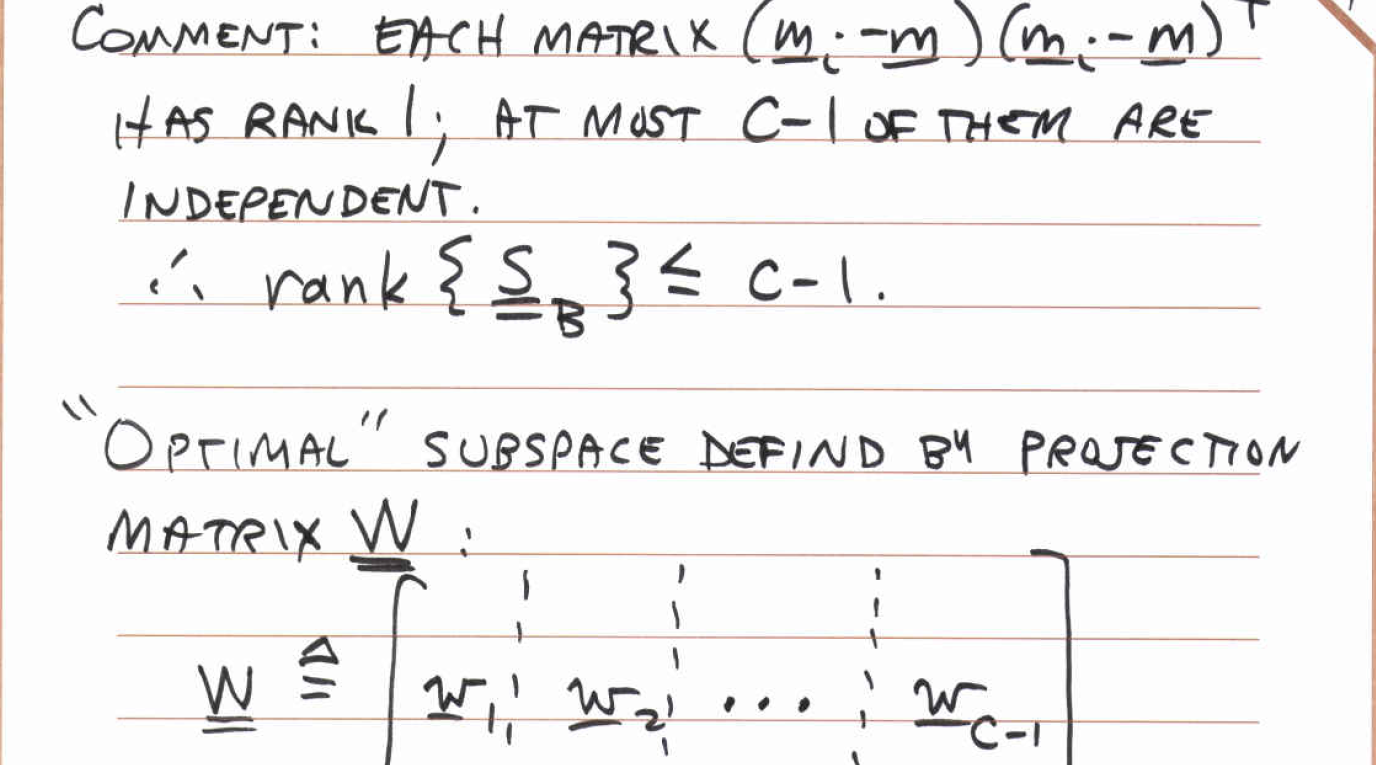 COMMENT: EACH MATRIX (m_i - m)(m_i - m)^T
HAS RANK 1; AT MOST C-1 OF THEM ARE
INDEPENDENT.
∴ rank { S_B } ≤ C-1.
"OPTIMAL" SUBSPACE DEFIND BY PROJECTION
MATRIX W :
W ≜ [ w_1 ¦ w_2 ¦ ... ¦ w_C-1 ]